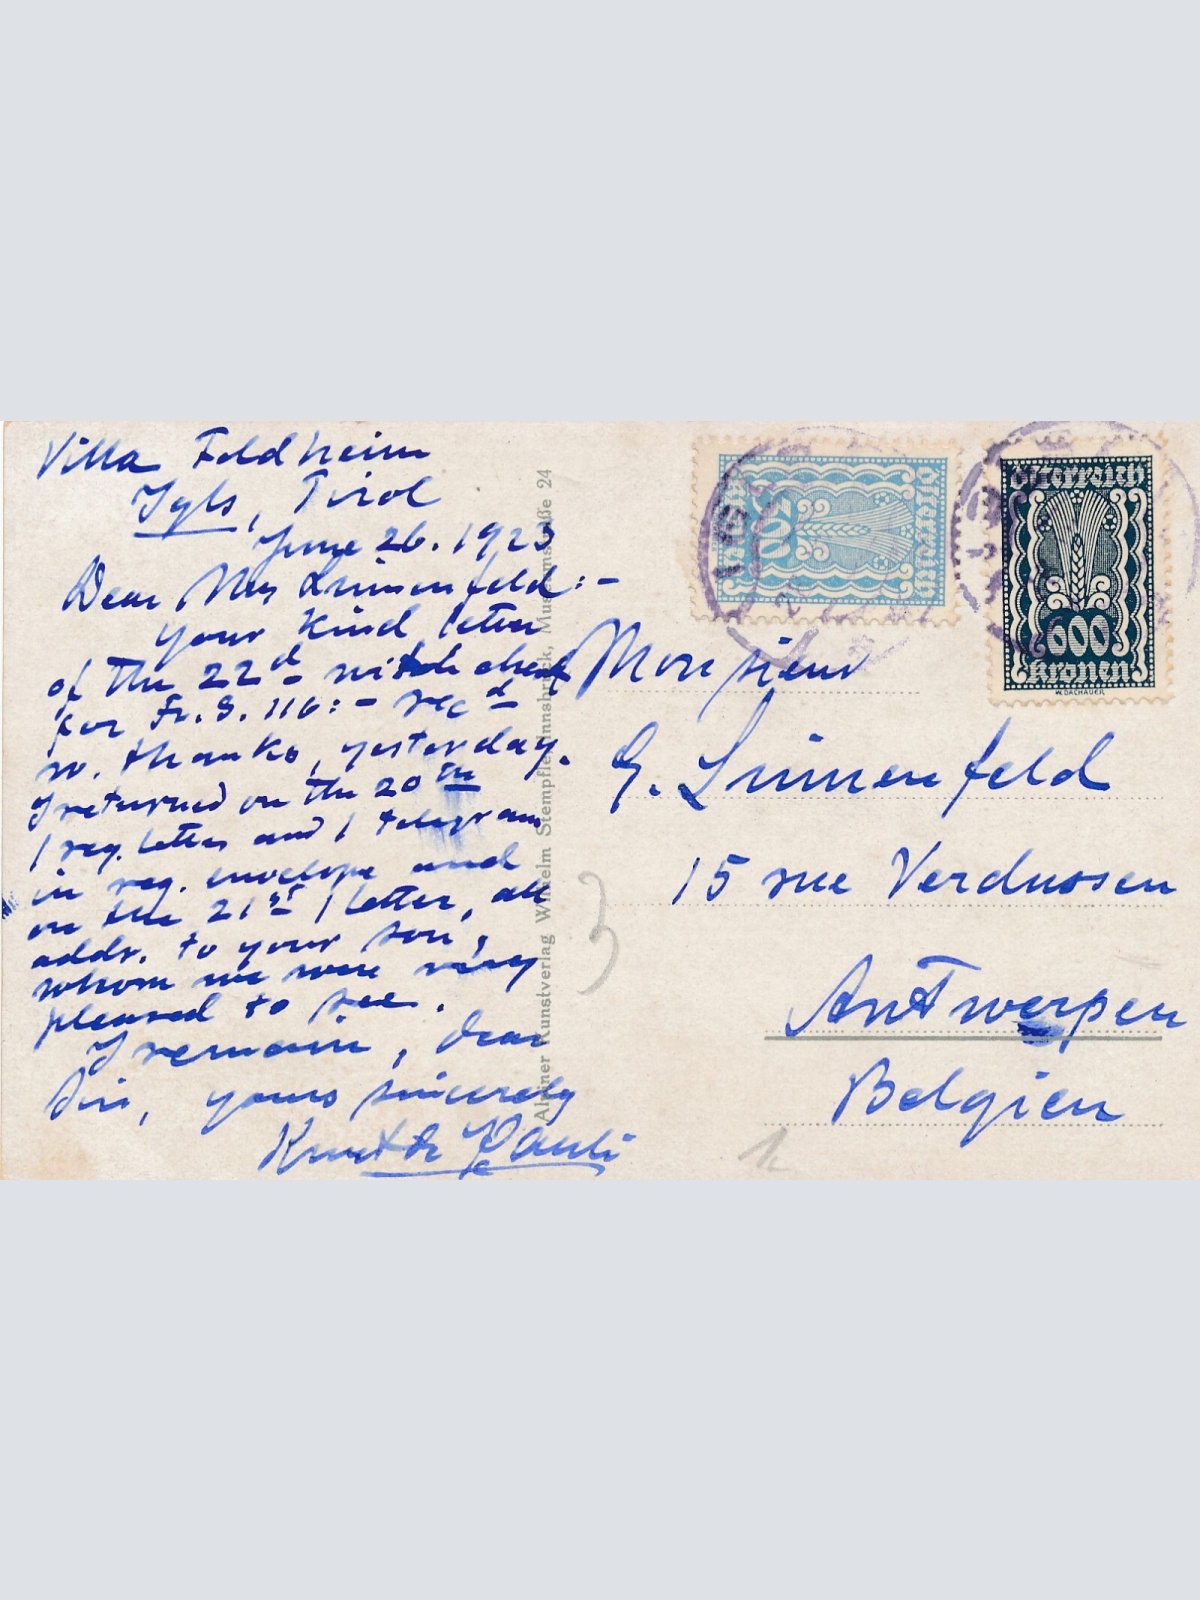 Villa Feldheim
Igls, Tirol
June 26. 1923
Dear Mr Linnenfeld:-
Your kind letter
of the 22d with check
for Fr. S. 116:- recd
w. thanks, yesterday.
I returned on the 20th
1 reg. letter and 1 telegram
in reg. envelope and
on the 21st 1 letter, all
addr. to your son,
whom we were very
pleased to see.
I remain, dear
Sir, yours sincerely
Pauli
Alpiner Kunstverlag Wilhelm Stempfle, Innsbruck, Museumstraße 24
IG
Österreich
Österreich
600
kronen
W. DACHAUER
Monsieur
G. Linnenfeld
15 rue Verdussen
Antwerpen
Belgien
3